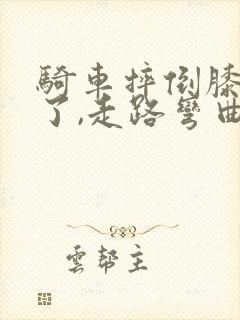 騎車摔倒膝
了,走路彎曲
雲幫主